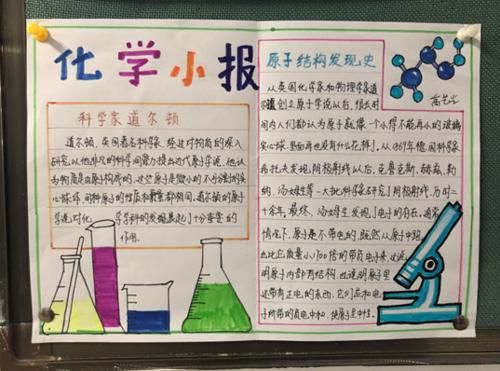 化学小报
科学家道尔顿
道尔顿，英国著名科学家，经过对物质的深入
研究，以他非凡的科学洞察力提出近代原子学说，他认
为物质是由原子构成的，这些原子是微小的不可分割的实
心球体，同种原子的性质和质量都相同。道尔顿的原子
学说对化学学科的发展起了十分重要的
作用。
原子结构发现史
从英国化学家和物理学家道
尔顿创立原子学说以后，很长时
间内人们都认为原子就像一个小得不能再小的玻璃
实心球，里面再也没有什么花样了。从1869年德国科学家
希托夫发现阴极射线以后，克鲁克斯、赫兹、勒
纳、汤姆生等一大批科学家研究了阴极射线，历时二
十余年，最终，汤姆生发现了电子的存在，通常
情况下，原子是不带电的，既然从原子中能
出比它质量小1700倍的带负电子来，这说
明原子内部有结构，也说明原子里
还带有正电的东西，它们应和电
子所带的负电中和，使原子呈中性。